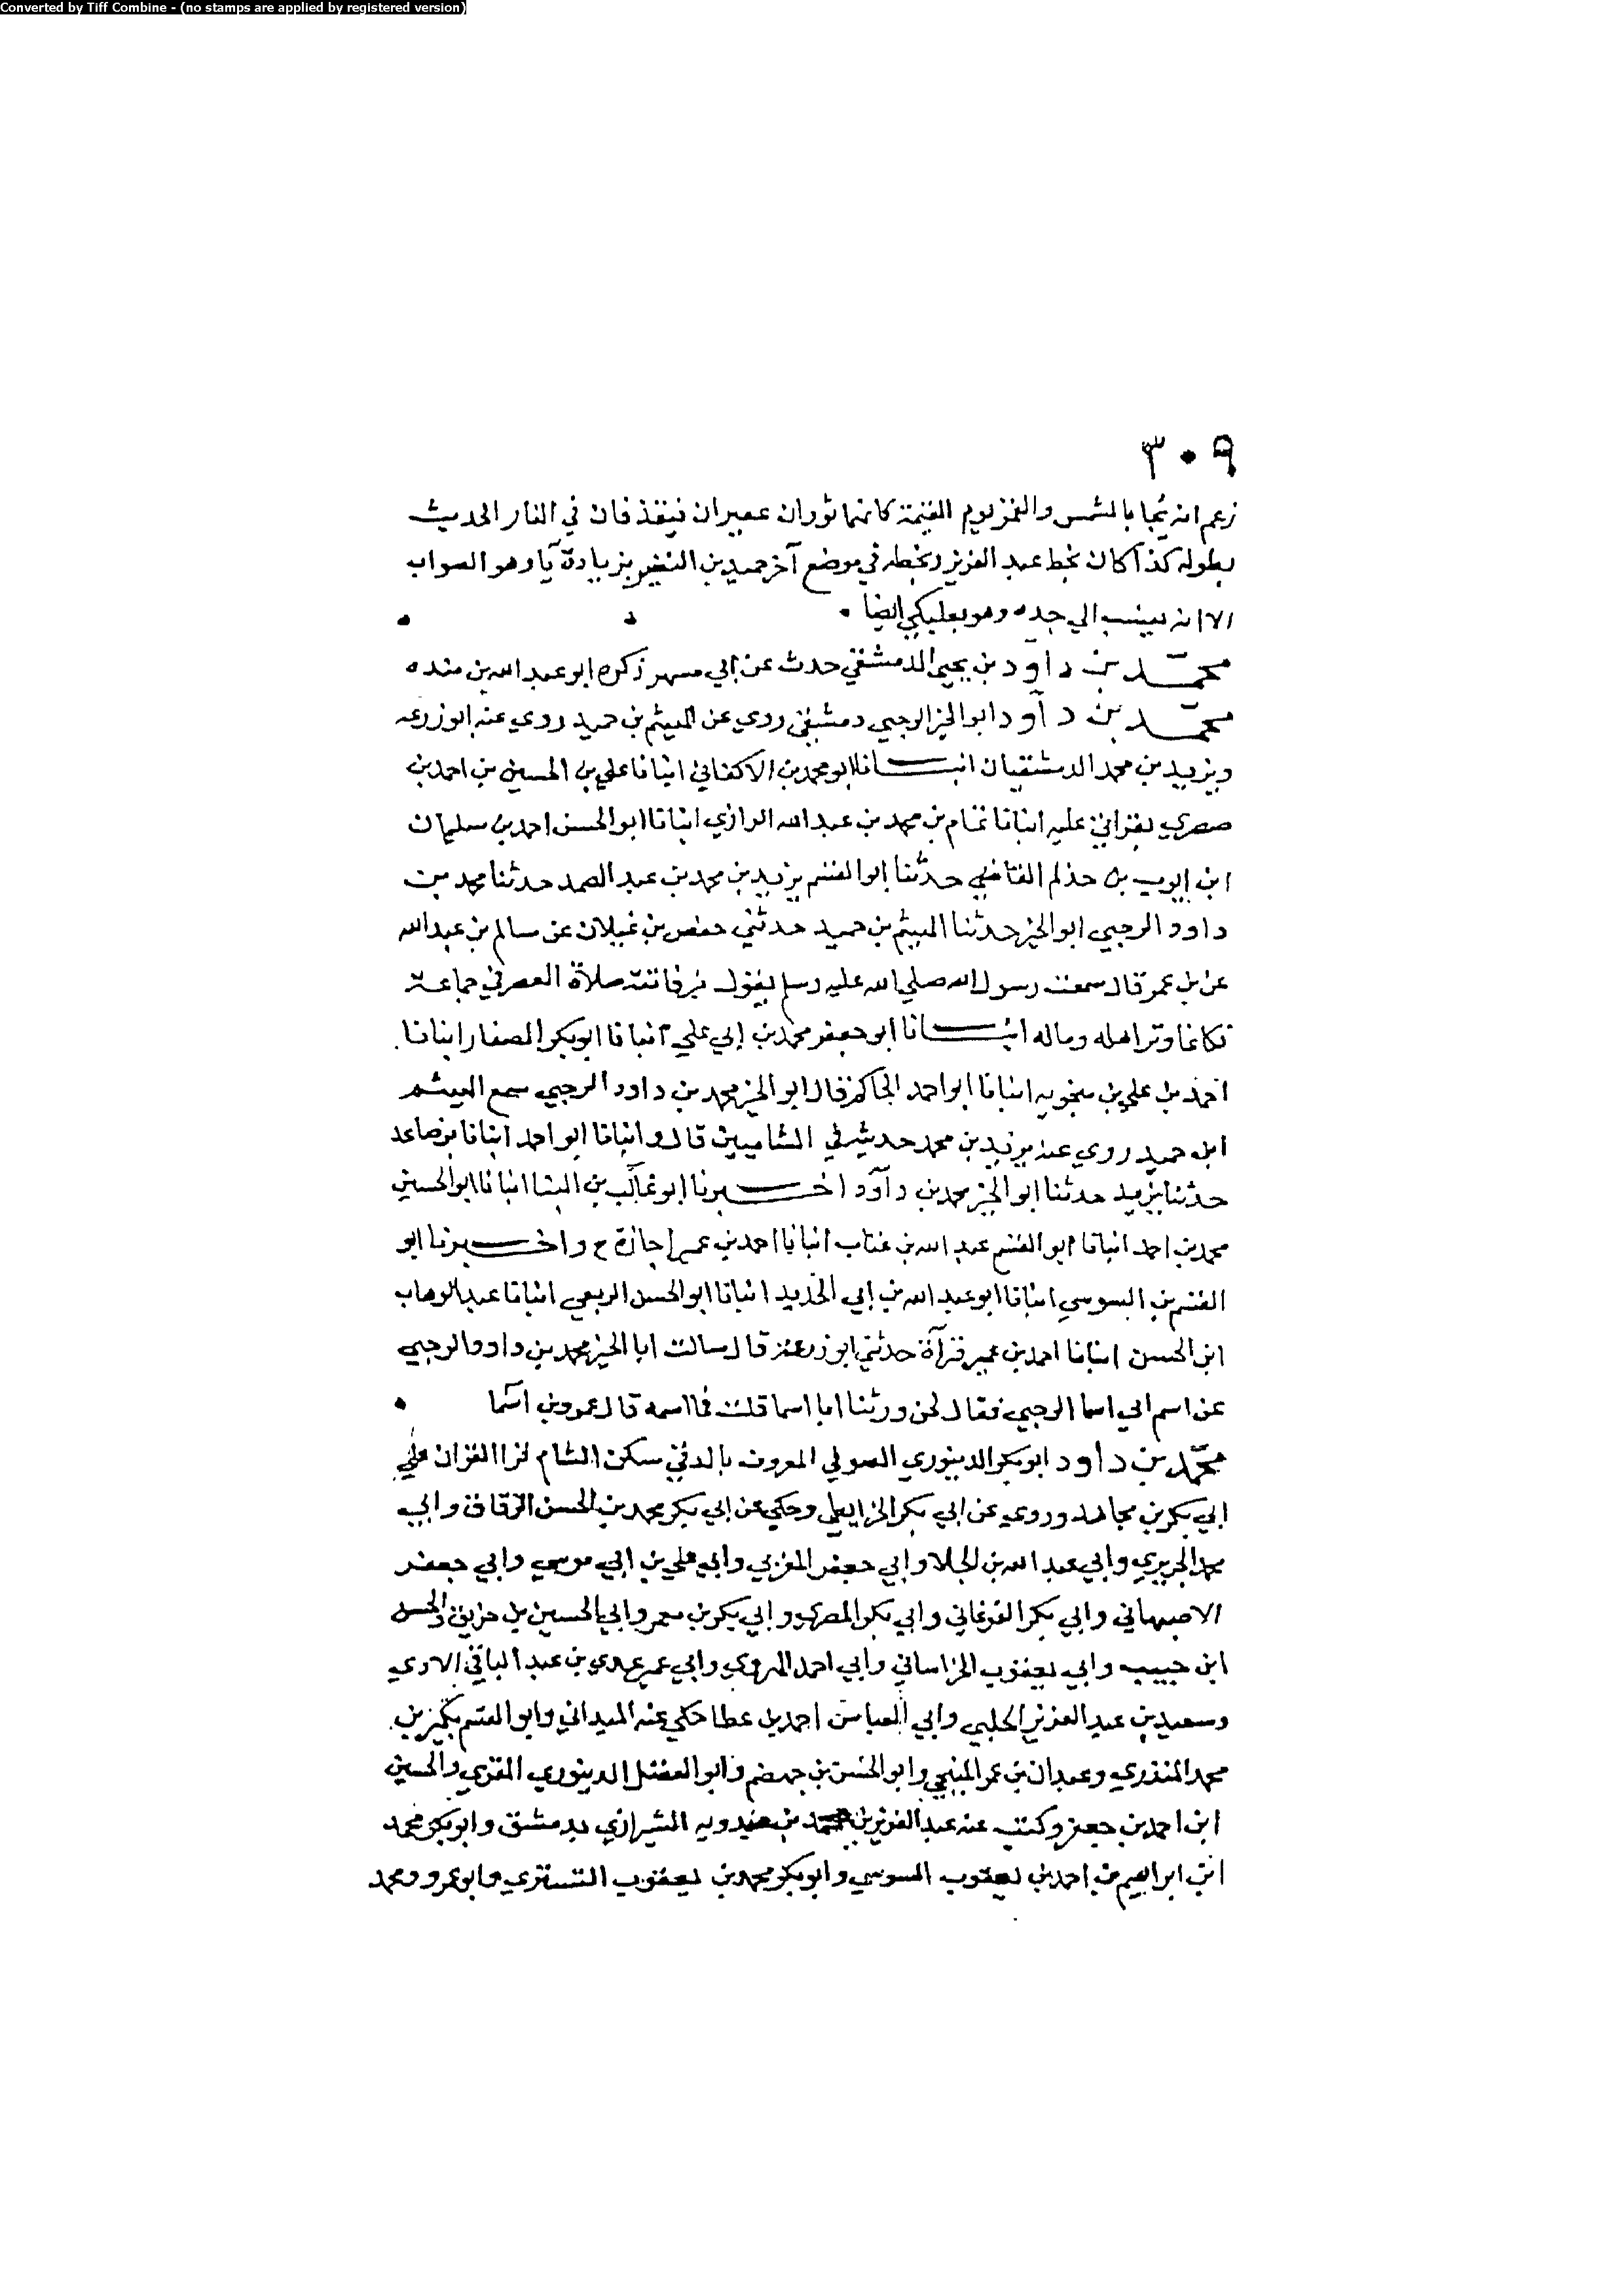 Converted by Tiff Combine - (no stamps are applied by registered version)
٣٠٩
زعم انه يُجا بالشمس والقمر يوم القيمة كانهما ثوران عقيران فيقذفان في النار الحديث
بطوله كذا كان بخط عبد العزيز وبخطه في موضع آخر حميد بن النضير بزيادة يا وهو الصواب
الا انه ينسب الي جده وهو بعلبكي ايضا
محمد بن داود بن يحيى الدمشقي حدث عن ابي مسهر ذكره ابو عبد الله بن منده
محمد بن داود ابو الخير الرحبي دمشقي روي عن الهيثم بن حميد روي عنه ابو زرعه
ويزيد بن محمد الدمشقيان انبانا ابو محمد بن الاكفاني انبانا علي بن الحسين بن احمد بن
صصري بقراتي عليه انبانا تمام بن محمد بن عبد الله الرازي انبانا ابو الحسن احمد بن سليمان
ابن ايوب بن حذلم القاضي حدثنا ابو القسم يزيد بن محمد بن عبد الصمد حدثنا محمد بن
داود الرحبي ابو الخير حدثنا الهيثم بن حميد حدثني حفص بن غيلان عن سالم بن عبد الله
عن بن عمر قال سمعت رسول الله صلي الله عليه وسلم يقول من فاتته صلاة العصر في جماعة
فكانما وتر اهله وماله انبانا ابو جعفر محمد بن ابي علي انبانا ابو بكر الصفار انبانا
احمد بن علي بن منجويه انبانا ابو احمد الحاكم قال ابو الخير محمد بن داود الرحبي سمع الهيثم
ابن حميد روي عنه يزيد بن محمد حديثه في الشاميين قال وانبانا ابو احمد انبانا بن صاعد
حدثنا يزيد حدثنا ابو الخير محمد بن داود اخبرنا ابو غالب بن البنا انبانا ابو الحسين
محمد بن احمد انبانا ابو القسم عبد الله بن عتاب انبانا احمد بن عمير اجازة ح واخبرنا ابو
القسم بن السوسي انبانا ابو عبد الله بن ابي الحديد انبانا ابو الحسن الربعي انبانا عبد الوهاب
ابن الحسن انبانا احمد بن عمير قرآة حدثني ابو زرعة قال سالت ابا الخير محمد بن داود الرحبي
عن اسم ابي اسما الرحبي فقال نحن ورثنا ابا اسما قلت فما اسمه قال عمرو بن اسما
محمد بن داود ابو بكر الدينوري الصوفي المعروف بالدقي سكن الشام قرا القران علي
ابي بكر بن مجاهد وروي عن ابي بكر الخرايطي وحكي عن ابي بكر محمد بن الحسن الزقاق وابي
محمد الجريري وابي عبد الله بن الجلا وابي جعفر المغربي وابي علي بن ابي موسي وابي جعفر
الاصبهاني وابي بكر الفرغاني وابي بكر المصري وابي بكر بن معمر وابي الحسين بن حريق والحسن
ابن حبيب وابي يعقوب الخراساني وابي احمد المهروي وابي عمر عدي بن عبد الباقي الادي
وسعيد بن عبد العزيز الحلبي وابي العباس احمد بن عطا حكي عنه الميداني وابو القسم بكير بن
محمد المنذري وعبدان بن عمر المنبجي وابو الحسن بن جهضم وابو الفضل الدينوري المقري والحسين
ابن احمد بن جعفر وكتب عنه عبد العزيز بن محمد بن عبدويه الشيرازي بدمشق وابو بكر محمد
ابن ابراهيم بن احمد بن يعقوب السوسي وابو بكر محمد بن يعقوب التستري وابو عمرو محمد